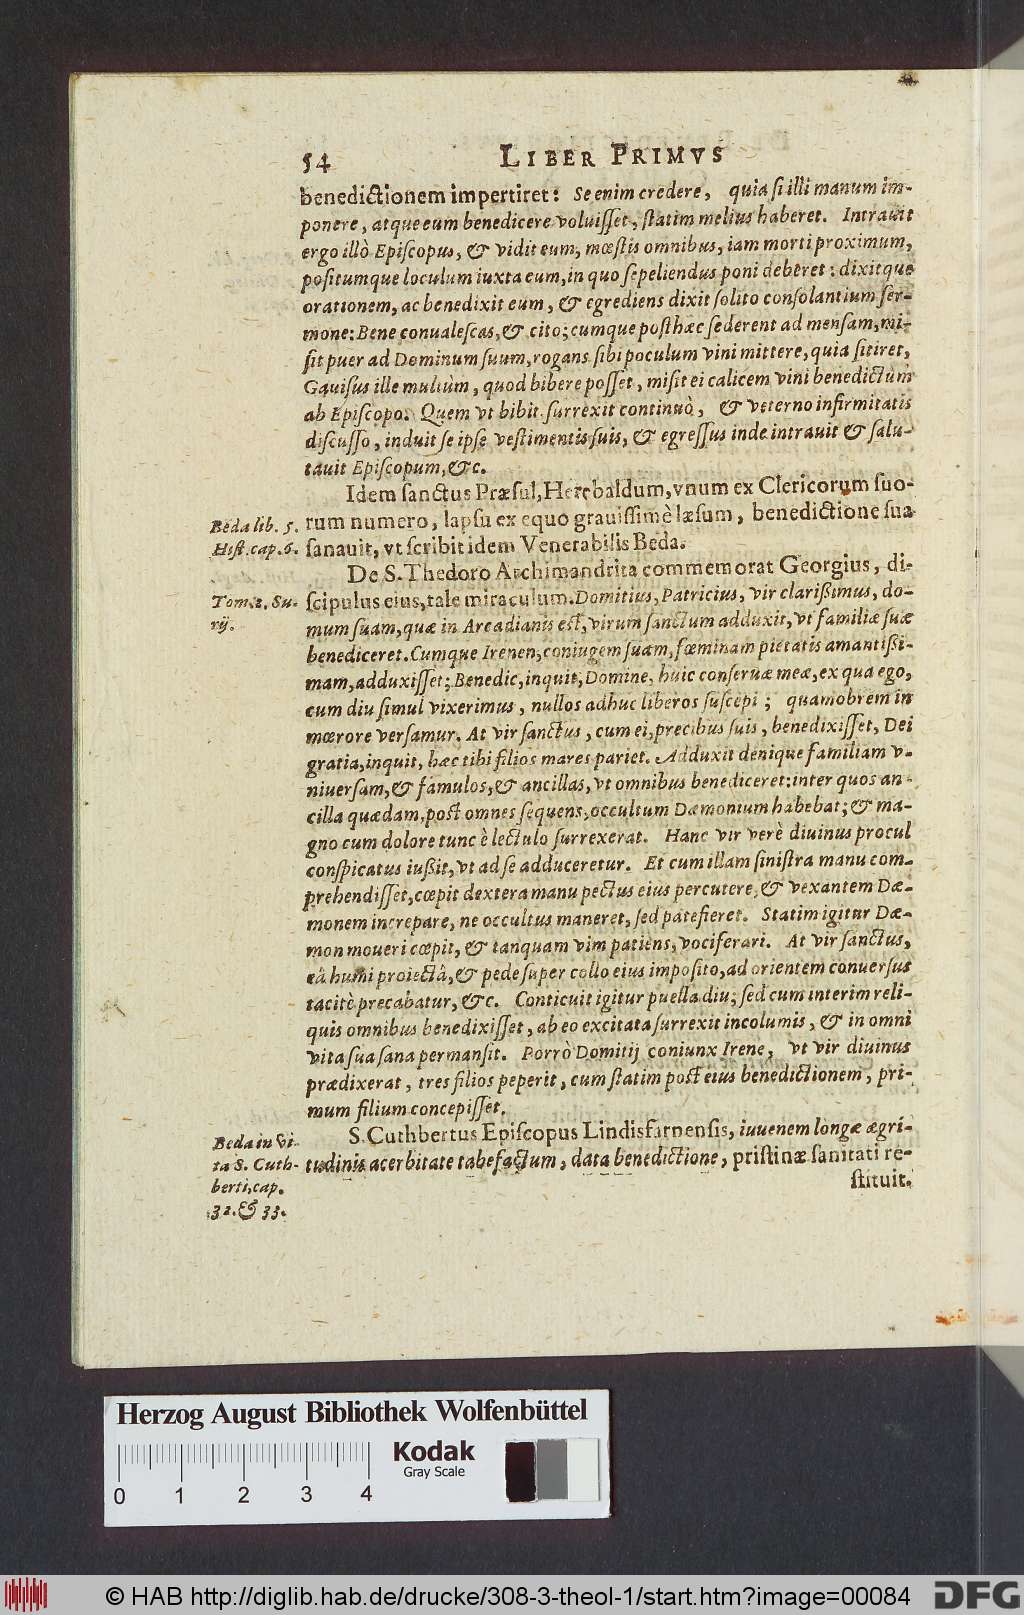 54 LIBER PRIMVS
benedictionem impertiret: Se enim credere, quia ſi illi manum im-
ponere, atque eum benedicere voluiſſet, ſtatim melius haberet. Intrauit
ergo illò Epiſcopus, & vidit eum, mœſtis omnibus, iam morti proximum,
poſitumque loculum iuxta eum, in quo ſepeliendus poni deberet: dixitque
orationem, ac benedixit eum, & egrediens dixit ſolito conſolantium ſer-
mone: Bene conualeſcas, & cito; cumque poſthæc ſederent ad menſam, mi-
ſit puer ad Dominum ſuum, rogans ſibi poculum vini mittere, quia ſitiret,
Gauiſus ille multùm, quod bibere poſſet, miſit ei calicem vini benedictum
ab Epiſcopo. Quem vt bibit ſurrexit continuò, & veterno infirmitatis
diſcuſſo, induit ſe ipſe veſtimentis ſuis, & egreſſus inde intrauit & ſalu-
tauit Epiſcopum, &c.
Idem ſanctus Præſul, Herebaldum, vnum ex Clericorum ſuo-
Beda lib. 5. rum numero, lapſu ex equo grauiſſimè læſum, benedictione ſua
Hiſt. cap. 6. ſanauit, vt ſcribit idem Venerabilis Beda.
De S. Thedoro Archimandrita commemorat Georgius, di-
Tom. 2. Su- ſcipulus eius, tale miraculum. Domitius, Patricius, vir clarißimus, do-
rij. mum ſuam, quæ in Arcadianis eſt, virum ſanctum adduxit, vt familiæ ſuæ
benediceret. Cumque Irenen, coniugem ſuam, fœminam pietatis amantißi-
mam, adduxiſſet; Benedic, inquit, Domine, huic conſeruæ meæ, ex qua ego,
cum diu ſimul vixerimus, nullos adhuc liberos ſuſcepi; quamobrem in
mœrore verſamur. At vir ſanctus, cum ei, precibus ſuis, benedixiſſet, Dei
gratia, inquit, hæc tibi filios mares pariet. Adduxit denique familiam v-
niuerſam, & famulos, & ancillas, vt omnibus benediceret: inter quos an-
cilla quædam, poſt omnes ſequens, occultum Dæmonium habebat; & ma-
gno cum dolore tunc è lectulo ſurrexerat. Hanc vir verè diuinus procul
conſpicatus iußit, vt ad ſe adduceretur. Et cum illam ſiniſtra manu com-
prehendiſſet, cœpit dextera manu pectus eius percutere, & vexantem Dæ-
monem increpare, ne occultus maneret, ſed patefieret. Statim igitur Dæ-
mon moueri cœpit, & tanquam vim patiens, vociferari. At vir ſanctus,
eâ humi proiectâ, & pede ſuper collo eius impoſito, ad orientem conuerſus
tacitè precabatur, &c. Conticuit igitur puella diu; ſed cum interim reli-
quis omnibus benedixiſſet, ab eo excitata ſurrexit incolumis, & in omni
vita ſua ſana permanſit. Porrò Domitij coniunx Irene, vt vir diuinus
prædixerat, tres filios peperit, cum ſtatim poſt eius benedictionem, pri-
mum filium concepiſſet.
Beda in Vi- S. Cuthbertus Epiſcopus Lindisfarnenſis, iuuenem longæ ægri-
ta S. Cuth- tudinis acerbitate tabefactum, data benedictione, priſtinæ ſanitati re-
berti, cap. ſtituit.
32. & 33.
Herzog August Bibliothek Wolfenbüttel
Kodak
Gray Scale
0 1 2 3 4
© HAB http://diglib.hab.de/drucke/308-3-theol-1/start.htm?image=00084
DFG